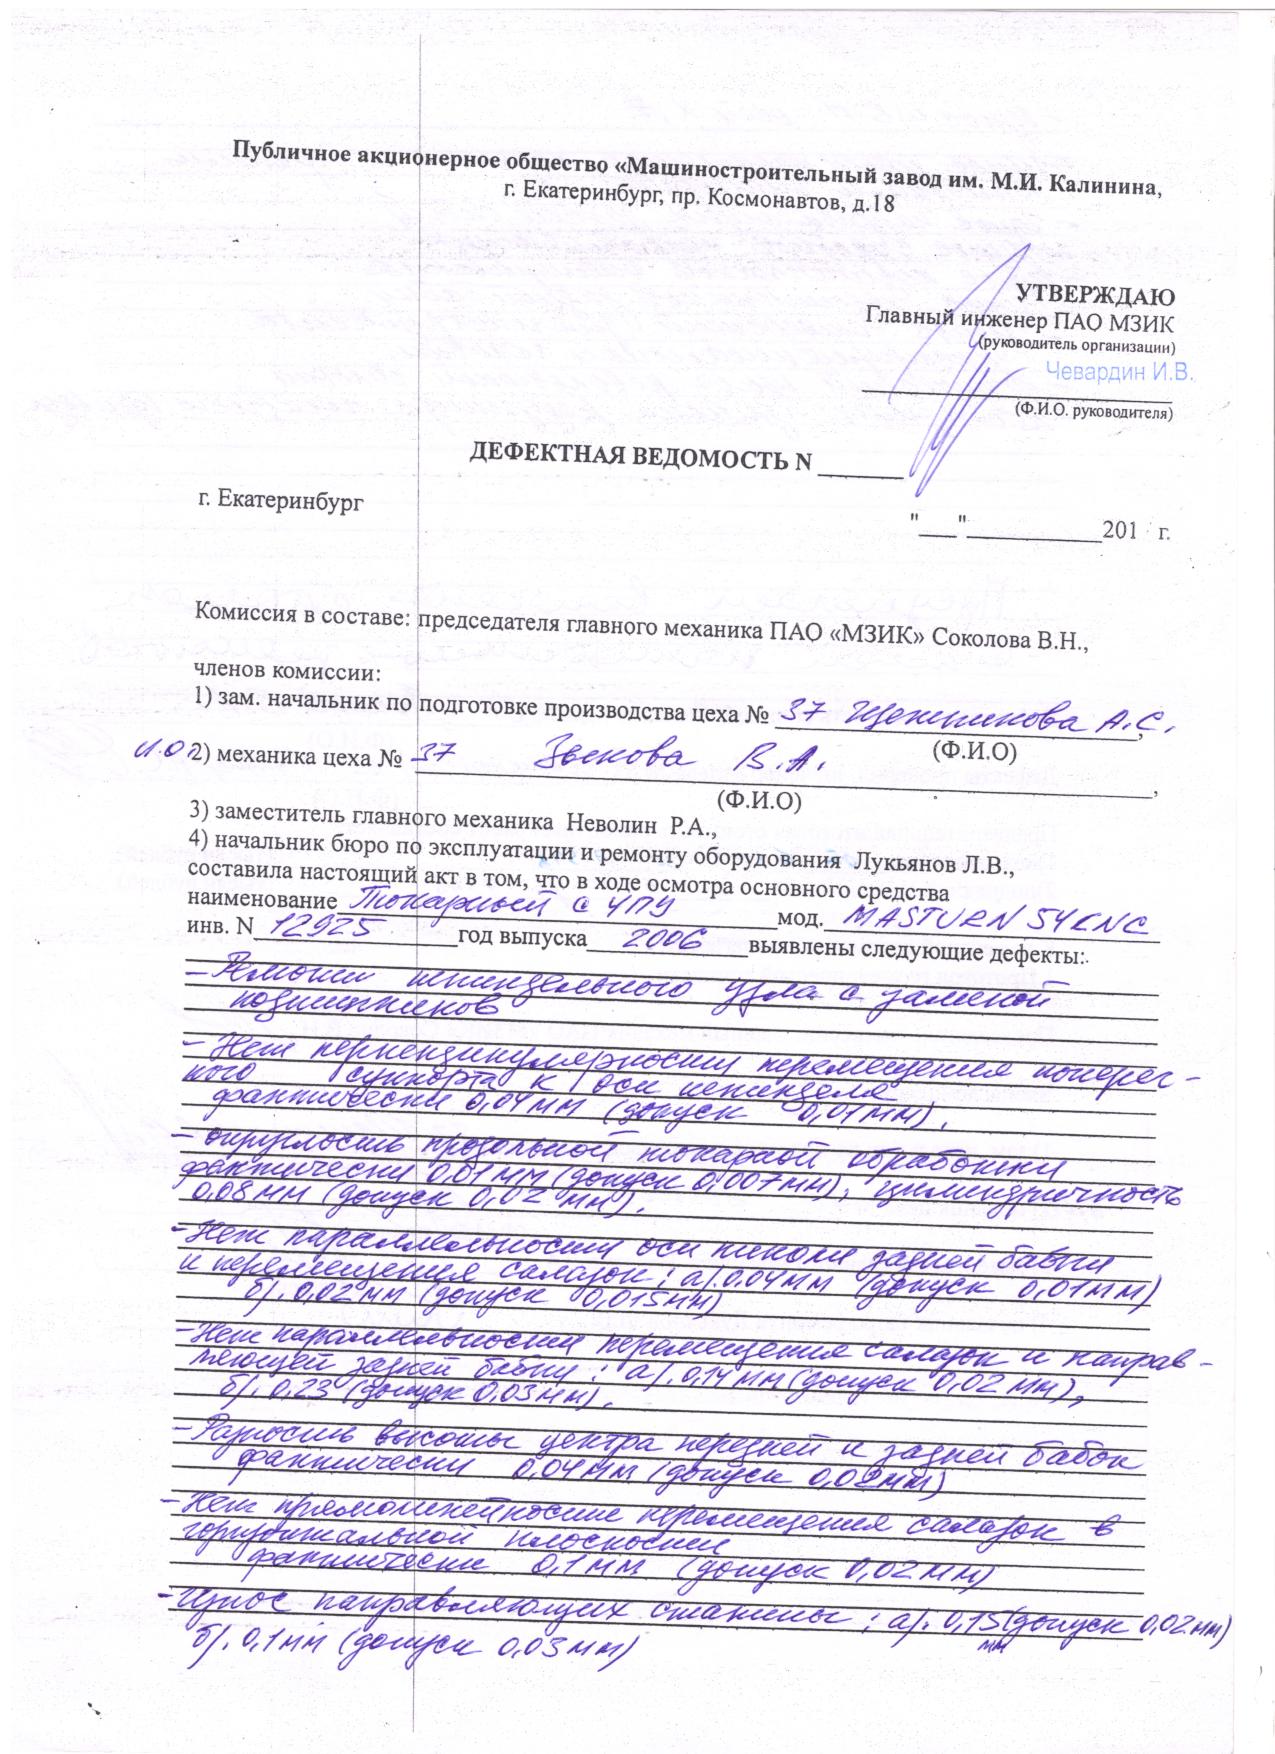 Публичное акционерное общество «Машиностроительный завод им. М.И. Калинина,
г. Екатеринбург, пр. Космонавтов, д.18
УТВЕРЖДАЮ
Главный инженер ПАО МЗИК
(руководитель организации)
Чевардин И.В.
(Ф.И.О. руководителя)
ДЕФЕКТНАЯ ВЕДОМОСТЬ N ______
г. Екатеринбург
"___"___________201 г.
Комиссия в составе: председателя главного механика ПАО «МЗИК» Соколова В.Н.,
членов комиссии:
1) зам. начальник по подготовке производства цеха № 37 А.С.,
(Ф.И.О)
И.О. 2) механика цеха № 37 Зыкова В.А.,
(Ф.И.О)
3) заместитель главного механика Неволин Р.А.,
4) начальник бюро по эксплуатации и ремонту оборудования Лукьянов Л.В.,
составила настоящий акт в том, что в ходе осмотра основного средства
наименование Токарный с ЧПУ мод. MASTURN 54CNC
инв. N 12925 год выпуска 2006 выявлены следующие дефекты:
- Ремонт шпиндельного узла с заменой
подшипников
- Нет перпендикулярности перемещения попереч-
ного суппорта к оси шпинделя
фактически 0,04мм (допуск 0,01мм).
- округлость продольной токарной обработки
фактически 0,01 мм (допуск 0,007мм), цилиндричность
0,08мм (допуск 0,02 мм).
- Нет параллельности оси пиноли задней бабки
и перемещения салазок: а/. 0.04мм (допуск 0,01мм)
б/. 0,02мм (допуск 0,015мм)
- Нет параллельности перемещения салазок и направ-
ляющей задней бабки: а/. 0,14мм (допуск 0,02 мм),
б/. 0,23 (допуск 0,03мм).
- Разность высоты центра передней и задней бабок
фактически 0,04мм (допуск 0,02мм)
- Нет прямолинейности перемещения салазок в
горизонтальной плоскости
фактически 0,1мм (допуск 0,02мм)
- Износ направляющих станины: а/. 0,15 мм (допуск 0,02мм)
б/. 0,1мм (допуск 0,03мм)